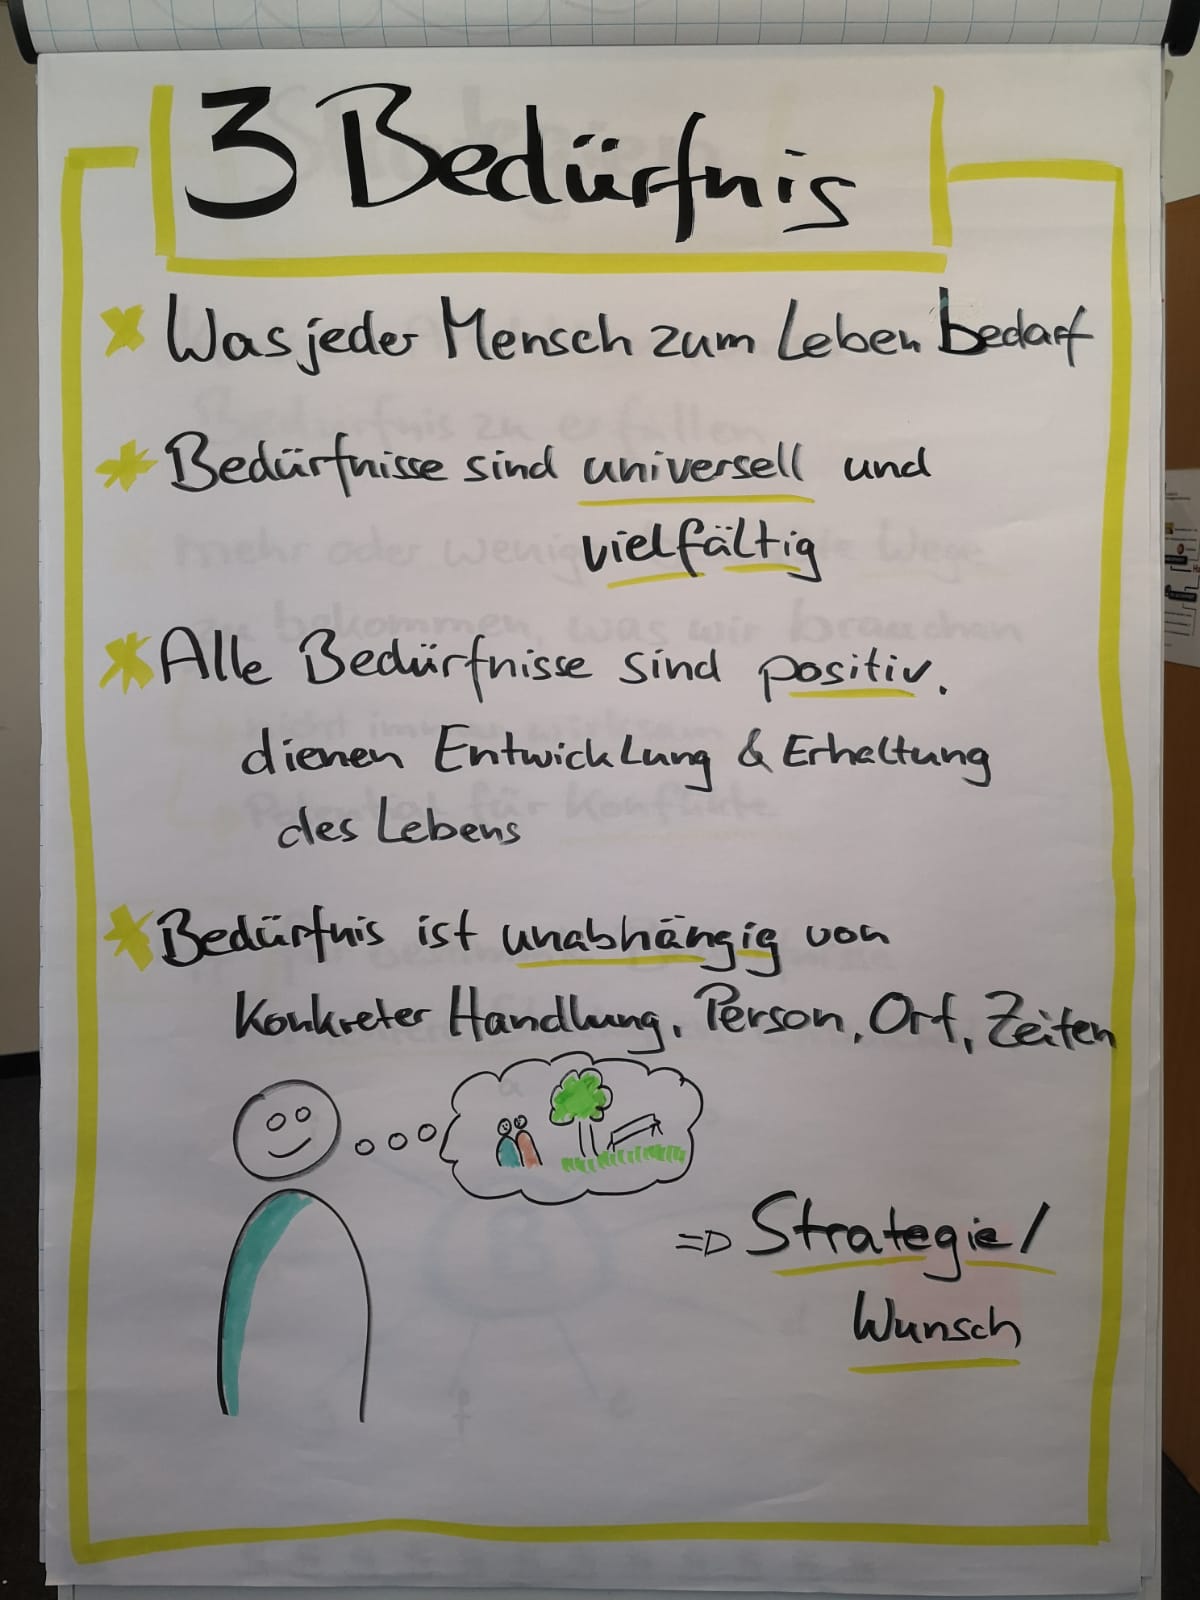 3 Bedürfnis
Was jeder Mensch zum Leben bedarf
Bedürfnisse sind universell und
vielfältig
Alle Bedürfnisse sind positiv.
dienen Entwicklung & Erhaltung
des Lebens
Bedürfnis ist unabhängig von
Konkreter Handlung, Person, Ort, Zeiten
=> Strategie/
Wunsch